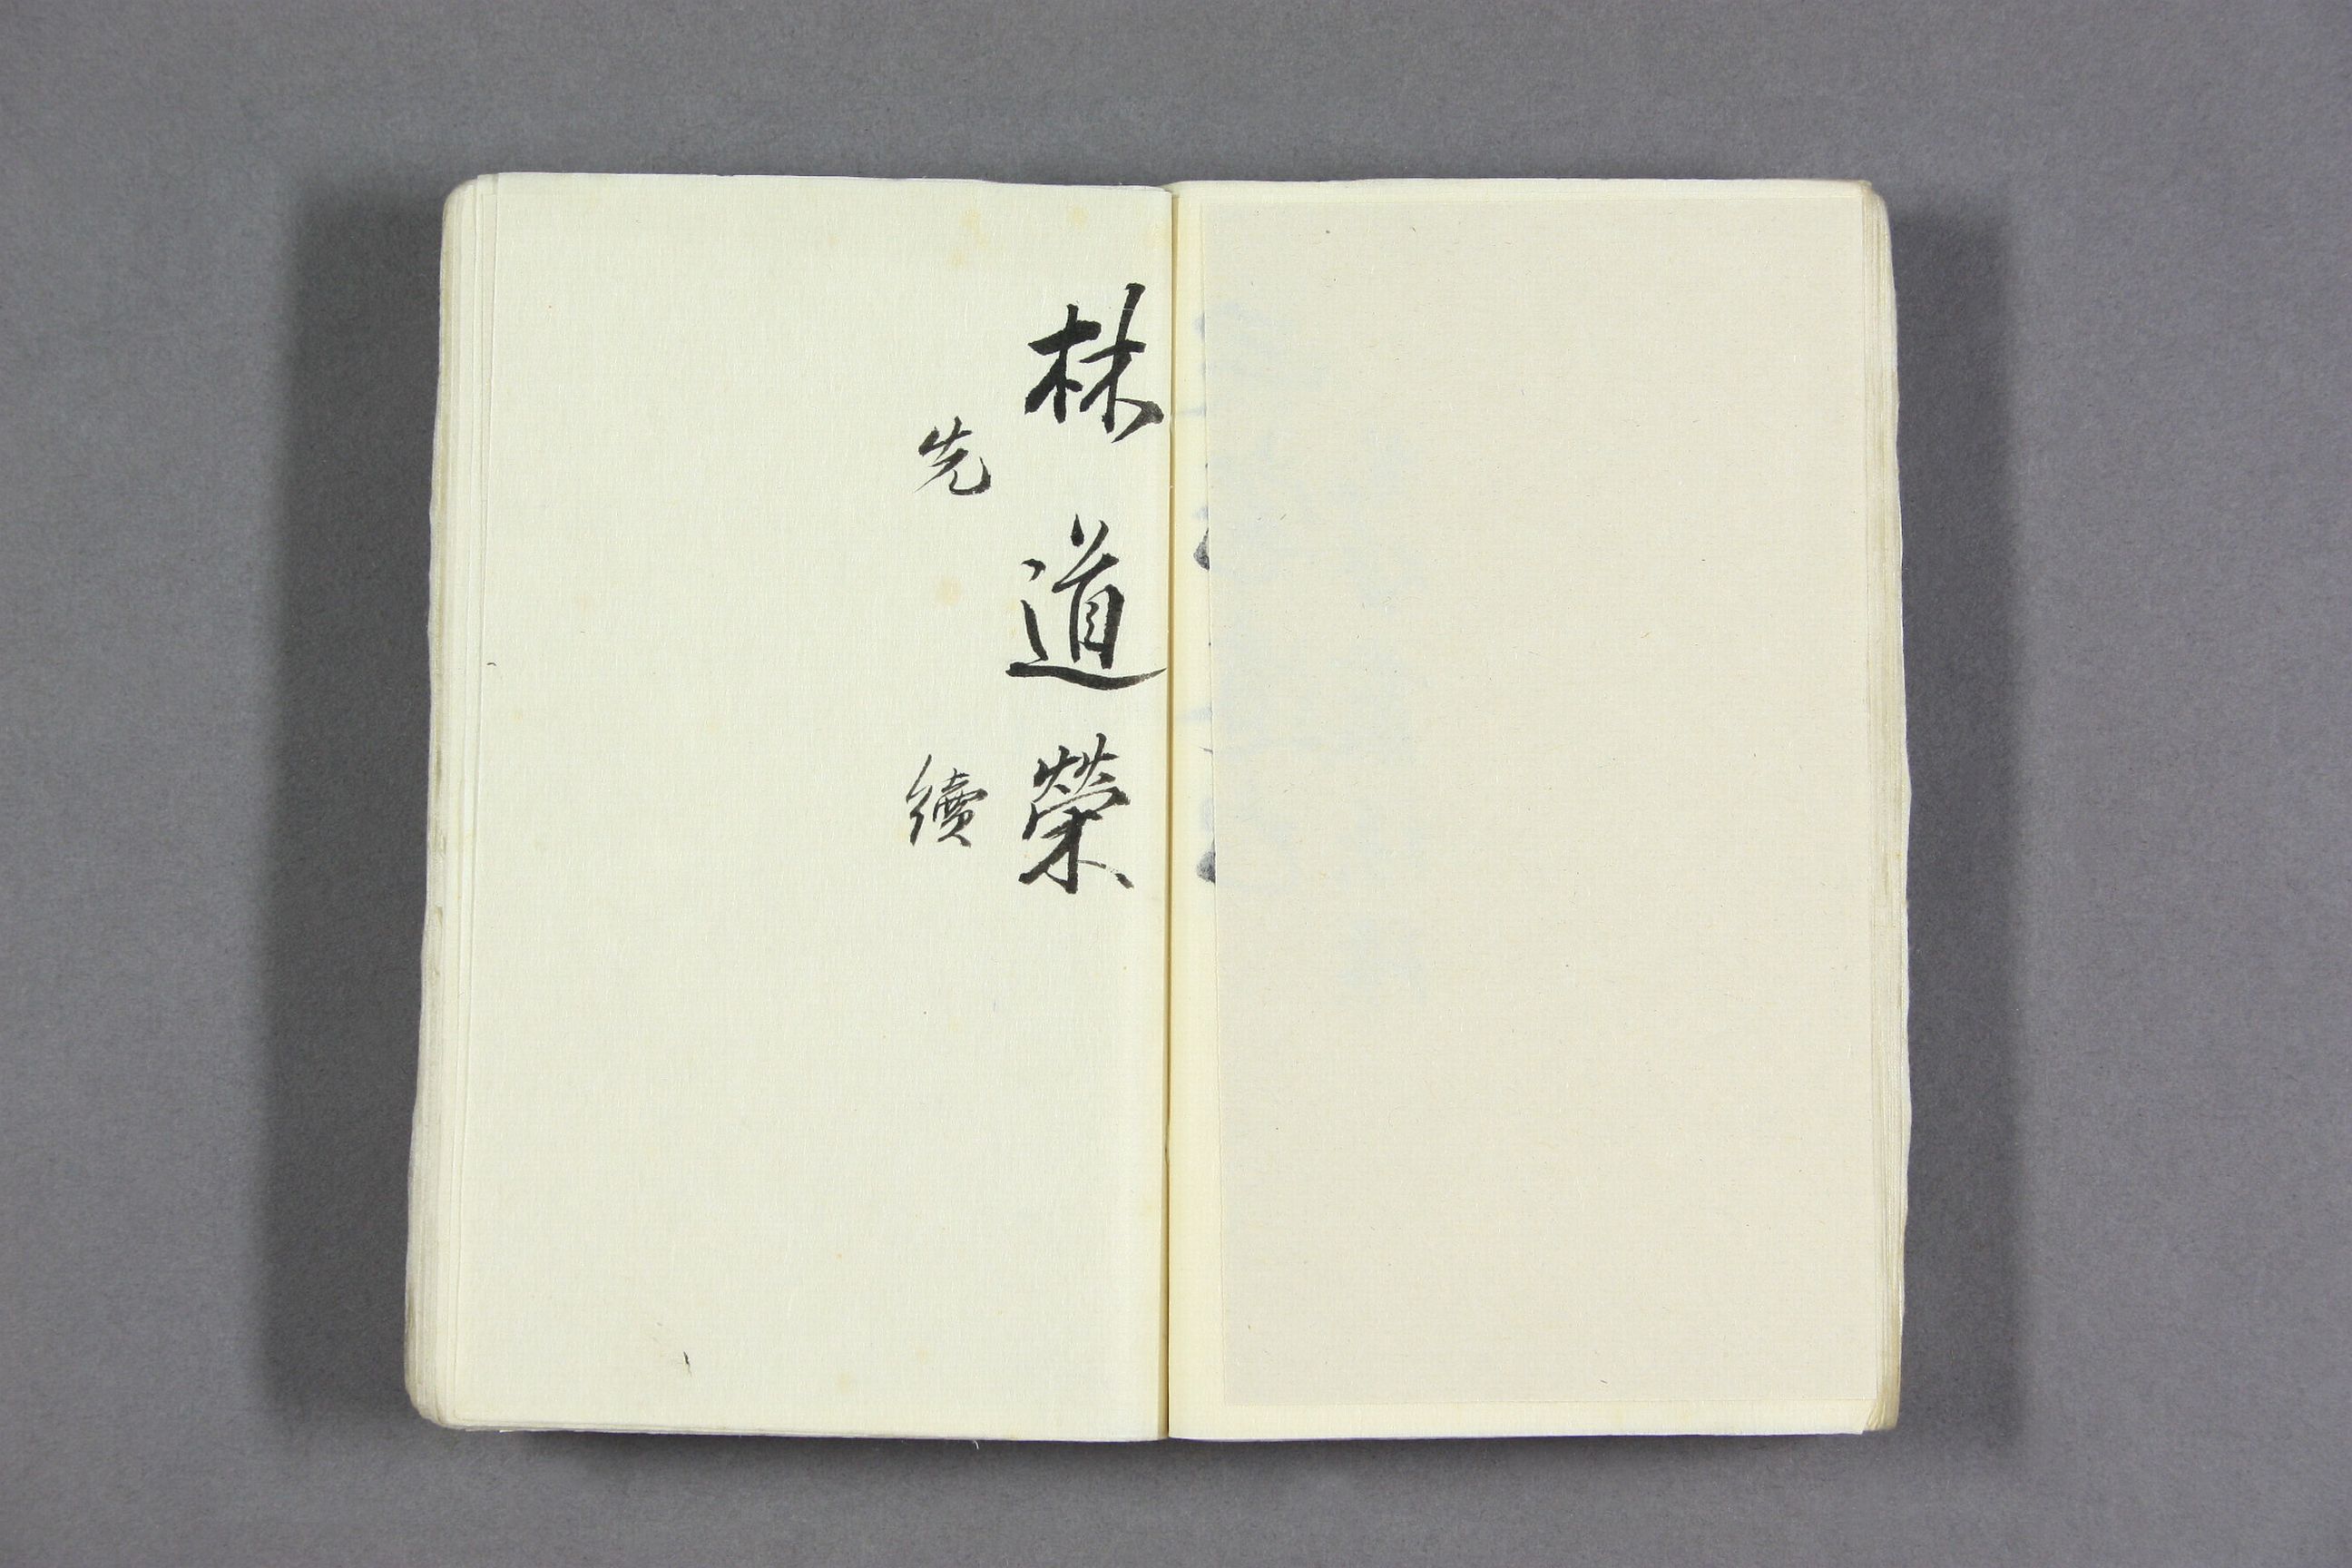 林道榮
先續